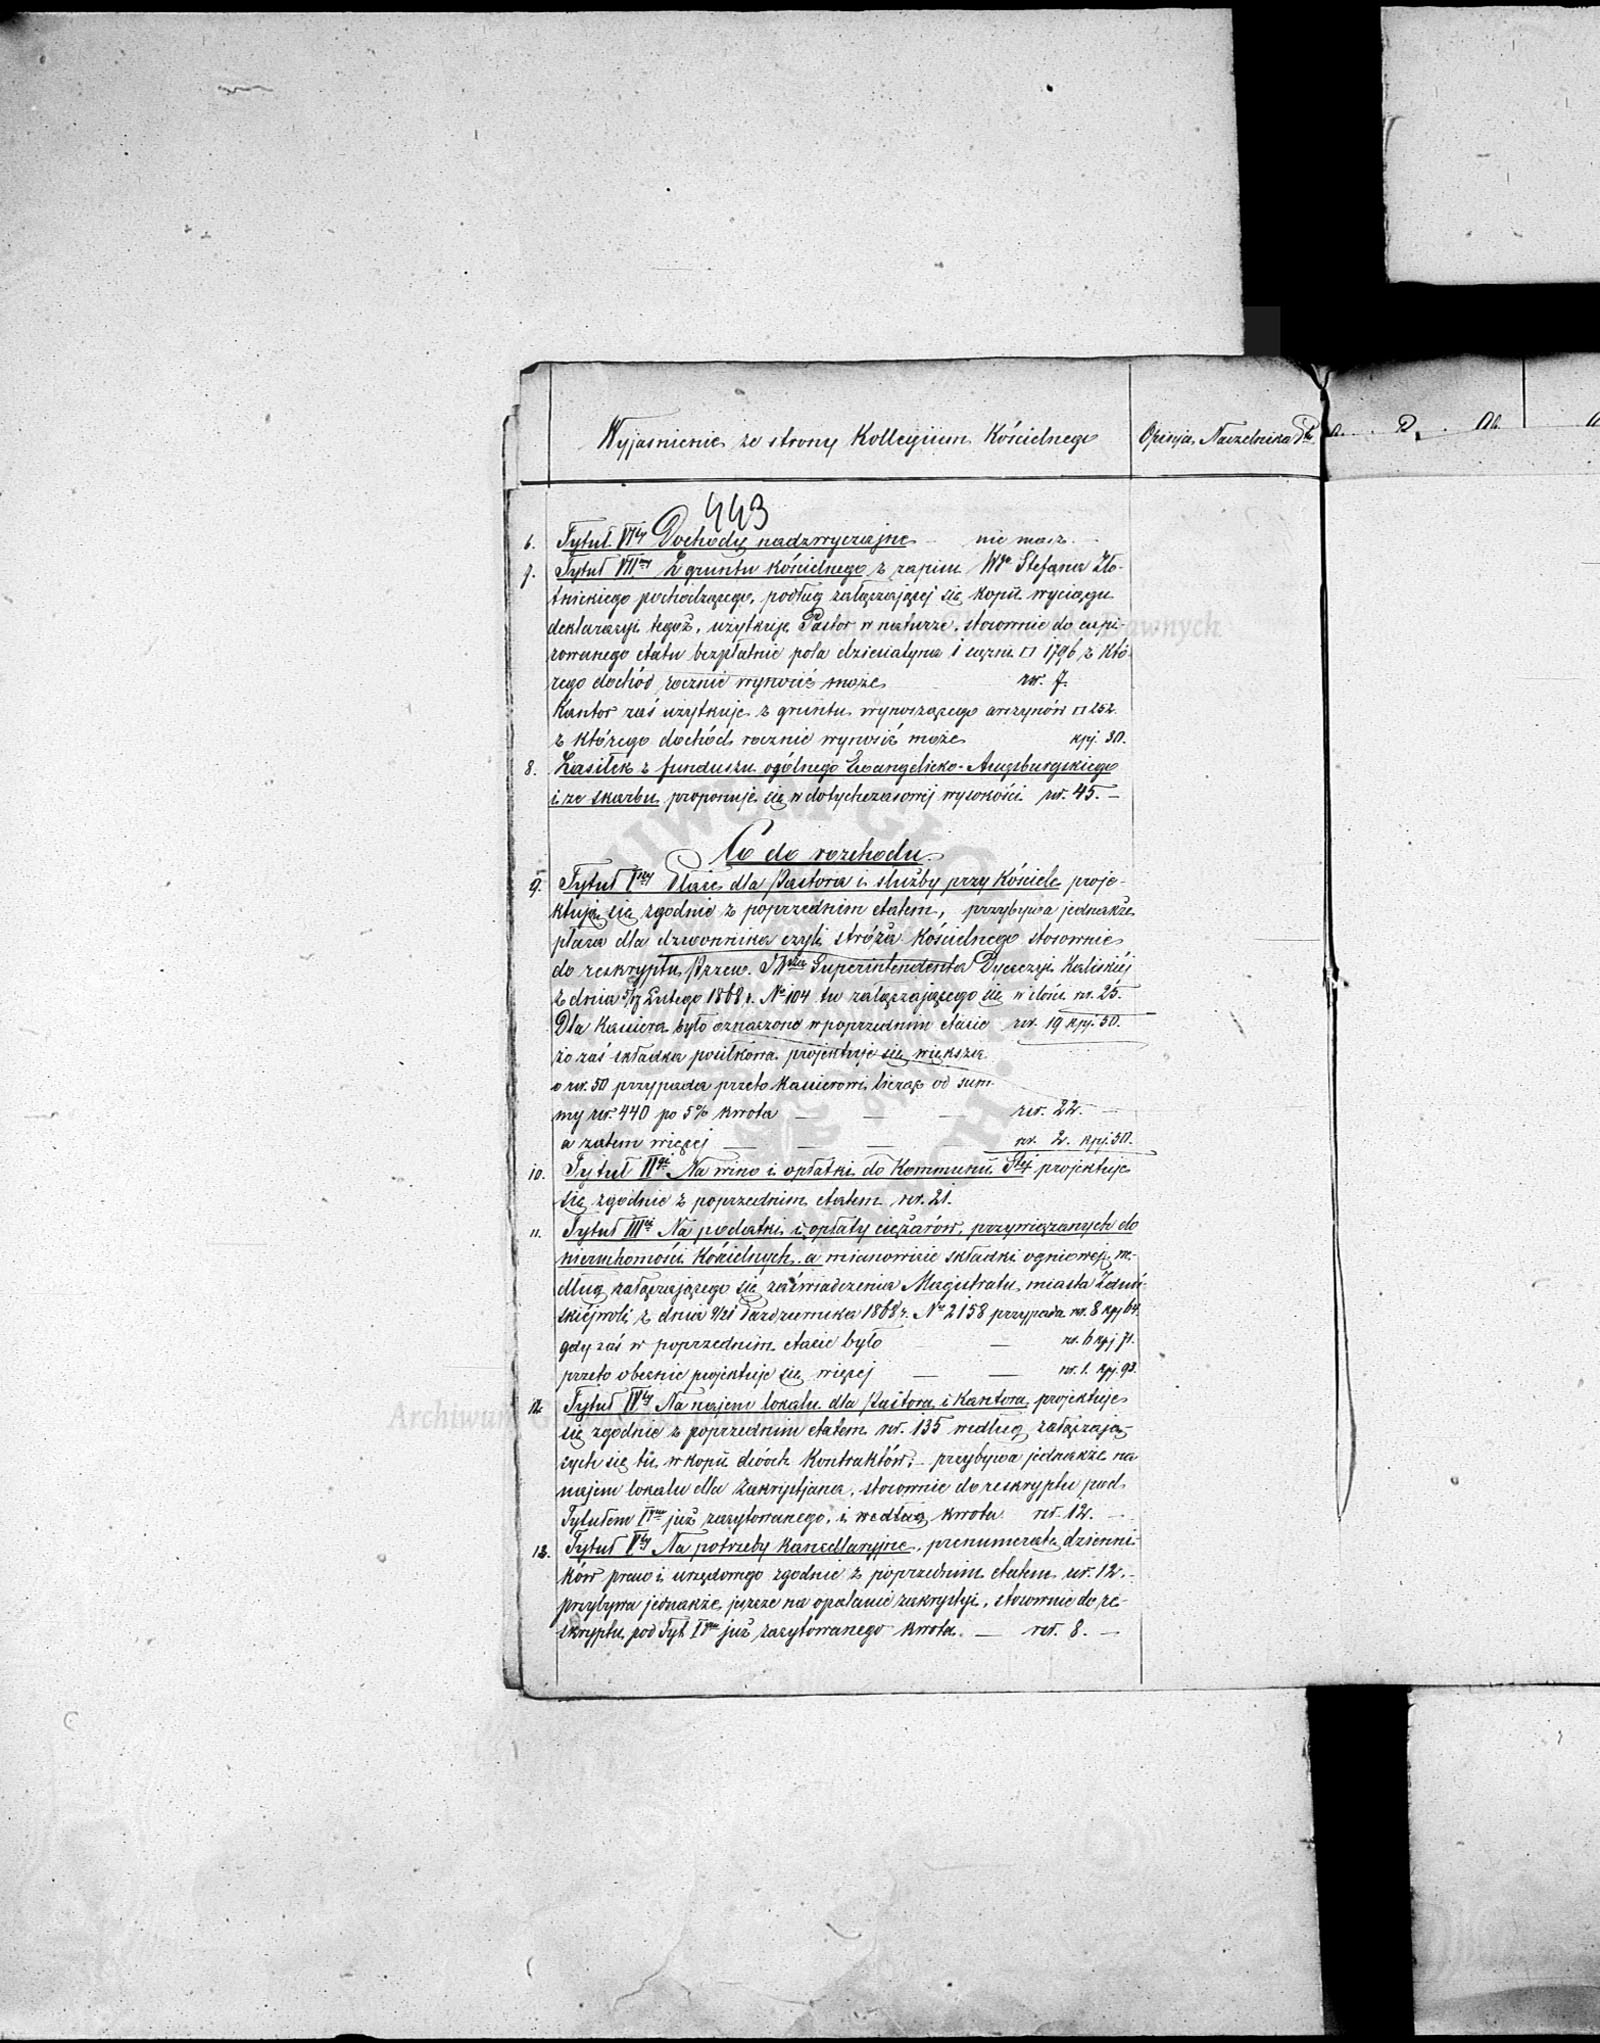 Wyjasnienie ze strony Kollegium Kościelnego
Opinja Naczelnika
443
6. Tytuł VIty Dochody nadzwyczajne nie masz
7. Tytuł VIImy Z gruntu kościelnego z zapisu Wgo Stefana Zło-
tnickiego pochodzącego, podług załączającej się kopii wyciągu
deklaracyi tegoż, użytkuje Pastor w naturze, stosownie do
rowanego etatu bezpłatnie pola dziesiatyna 1 sążni □ 1796 z któ-
rego dochód rocznie wynosić może rsr. 7.
Kantor zaś użytkuje z gruntu wynoszącego arszynów □ 252.
z którego dochód rocznie wynosić może kpj. 30.
8. Zasiłek z funduszu ogólnego Ewangelicko-Augsburgskiego
i ze skarbu proponuje się w dotychczasowéj wysokości rsr. 45. —
Co do rozchodu.
9. Tytuł Iszy Płace dla Pastora i służby przy Kościele proje-
ktują się zgodnie z poprzednim etatem, przybywa jednakże
płaca dla dzwonnika czyli stróża Kościelnego stosownie
do reskryptu Przew. Superintendenta Dyecezyi Kaliskiéj
z dnia 5/17 Lutego 1868 r. No 104 tu załączającego się w ilości rsr. 25.
Dla Kasiera było oznaczone w poprzednim etacie rsr. 19 kpj. 50.
że zaś składka posiłkowa projektuje się większa
o rsr. 50 przypada przeto Kasierowi, licząc od sum-
my rsr. 440 po 5% kwota — — — rsr. 22. —
a zatem więcej — — — rsr. 2. kpj. 50.
10. Tytuł IIgi Na wino i opłatki do Kommunii Stéj projektuje
się zgodnie z poprzednim etatem rsr. 21.
11. Tytuł IIIci Na podatki i opłaty ciężarów, przywiązanych do
nieruchomości Kościelnych, a mianowicie składki ogniowej, we-
dług załączającego się zaświadczenia Magistratu miasta Zduń-
skiéjwoli z dnia 9/21 Października 1868 r. No 2158 przypada rsr. 8 kpj 64.
gdy zaś w poprzednim etacie było — rsr. 6 kpj 71.
przeto obecnie projektuje się więcej — — rsr. 1. kpj. 93.
12. Tytuł IVty Na najem lokalu dla Pastora i Kantora projektuje
się zgodnie z poprzednim etatem rsr. 135 według załączają-
cych się tu w kopii dwóch Kontraktów; — przybywa jednakże na
najem lokalu dla Zakrystjana, stosownie do reskryptu pod
Tytułem Iszym już zacytowanego, i według kwota rsr. 12. —
13. Tytuł Vty Na potrzeby Kancellaryjne, prenumeratę dzienni-
ków praw i urzędowego zgodnie z poprzednim etatem rsr. 12. —
przybywa jednakże jeszcze na opalanie zakrystyi, stosownie do re-
skryptu pod Tyt. Iszym już zacytowanego kwota — rsr. 8. —